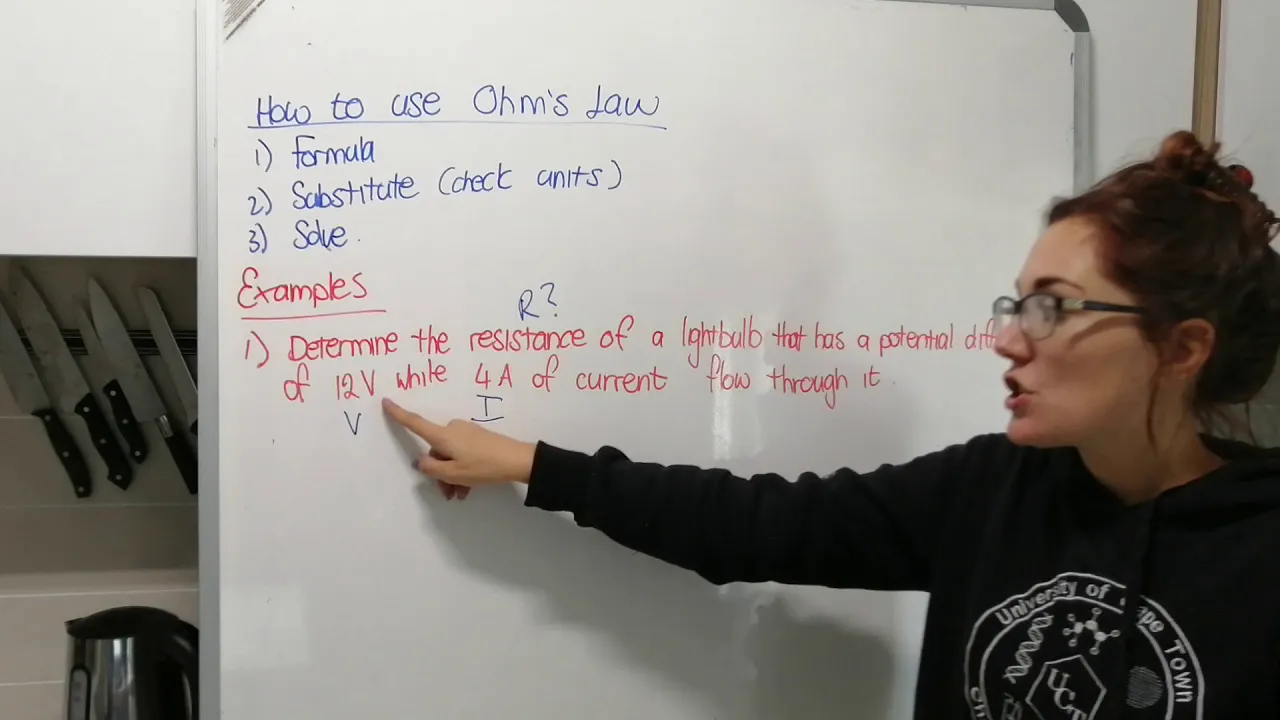 How to use Ohm's Law
1) Formula
2) Substitute (check units)
3) Solve.
Examples
R?
1) Determine the resistance of a lightbulb that has a potential diff
of 12V while 4A of current flow through it.
V I
University of Cape Town
UCT